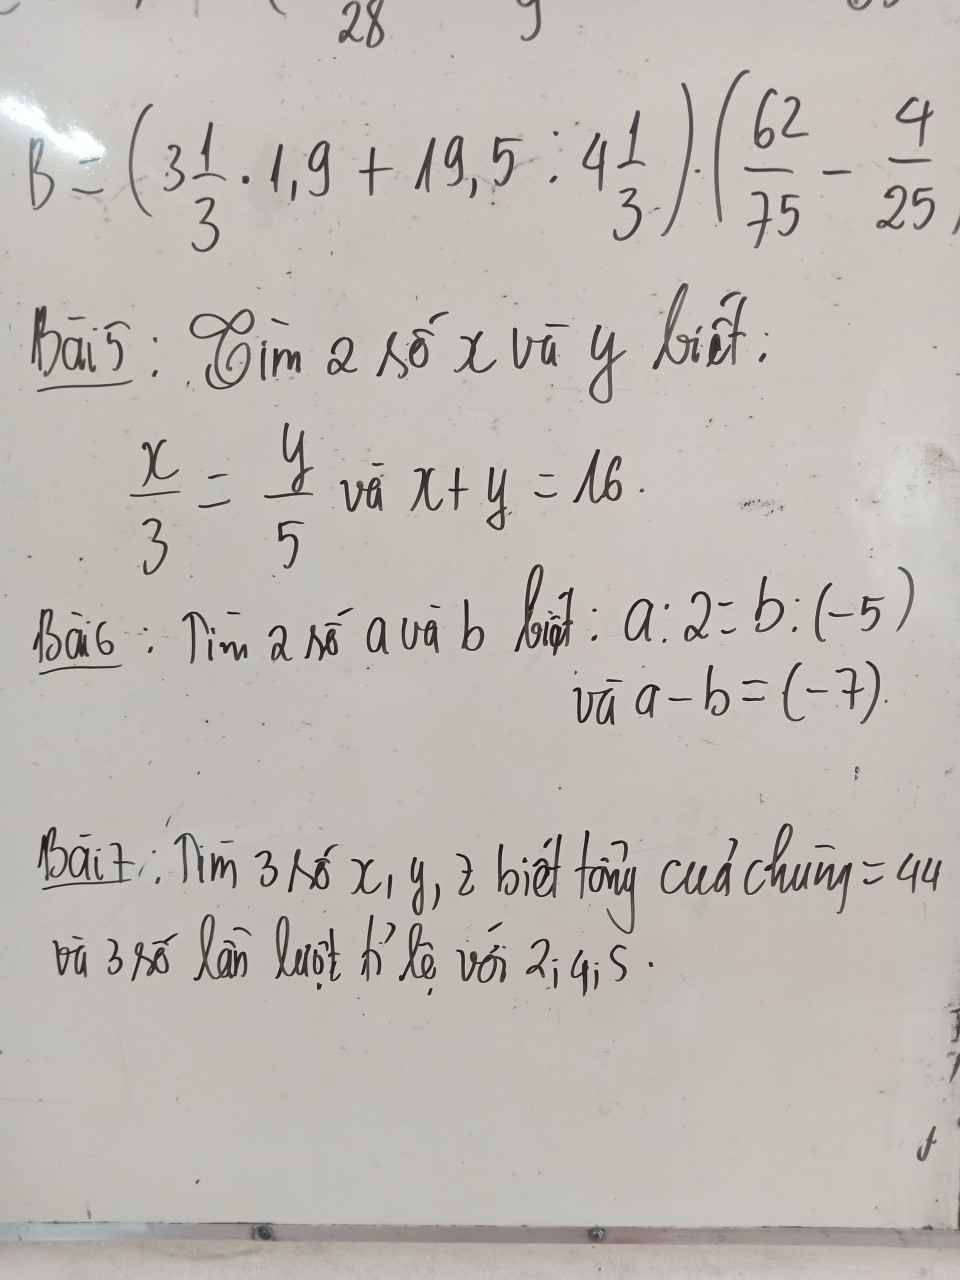 28 9
B = (3 1/3 . 1,9 + 19,5 : 4 1/3) . (62/75 - 4/25)
Bài 5 : Tìm 2 số x và y biết :
x/3 = y/5 và x + y = 16 .
Bài 6 : Tìm 2 số a và b biết : a : 2 = b : (-5)
và a - b = (-7) .
Bài 7 : Tìm 3 số x, y, z biết tổng của chúng = 44
và 3 số lần lượt tỉ lệ với 2; 4; 5 .